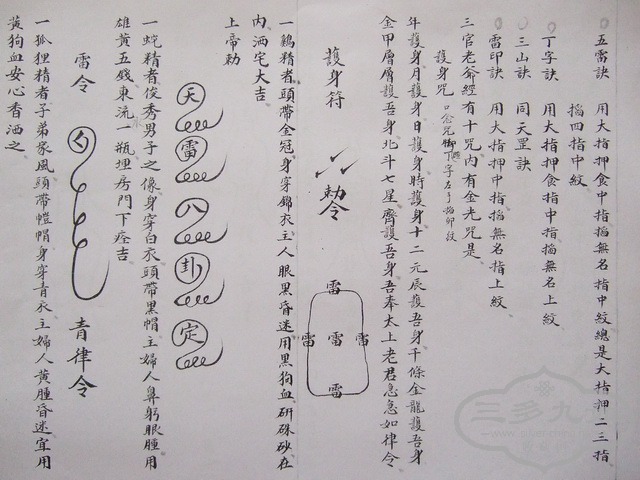 五雷訣　用大指押食中指掐無名指中紋總是大指押二三指
掐四指中紋
丁字訣　用大指押食指中指掐無名上紋
三山訣　同天罡訣
雷印訣　用大指押中指掐無名指上紋
三官老爺經有十咒內有金光咒是
護身咒 口念咒腳下字左手掐卯紋
年護身月護身日護身時護身十二元辰護吾身千條金龍護吾身
金甲層層護吾身北斗七星齊護吾身吾奉太上老君急急如律令
護身符　敕令　雷　雷　雷　雷　雷
一鷄精者頭帶金冠身穿錦衣主人眼黑昏迷用黑狗血研硃砂在
內洒宅大吉
上帝勅
天雷八卦定
一蛇精者俊秀男子之像身穿白衣頭帶黑帽主婦人鼻䶊眼腫用
雄黃五錢東流一瓶埋房門下痊吉
雷令　青律令
一狐狸精者子弟家風頭帶氊帽身穿青衣主婦人黃腫昏迷宜用
黃狗血安心香洒之
三多九